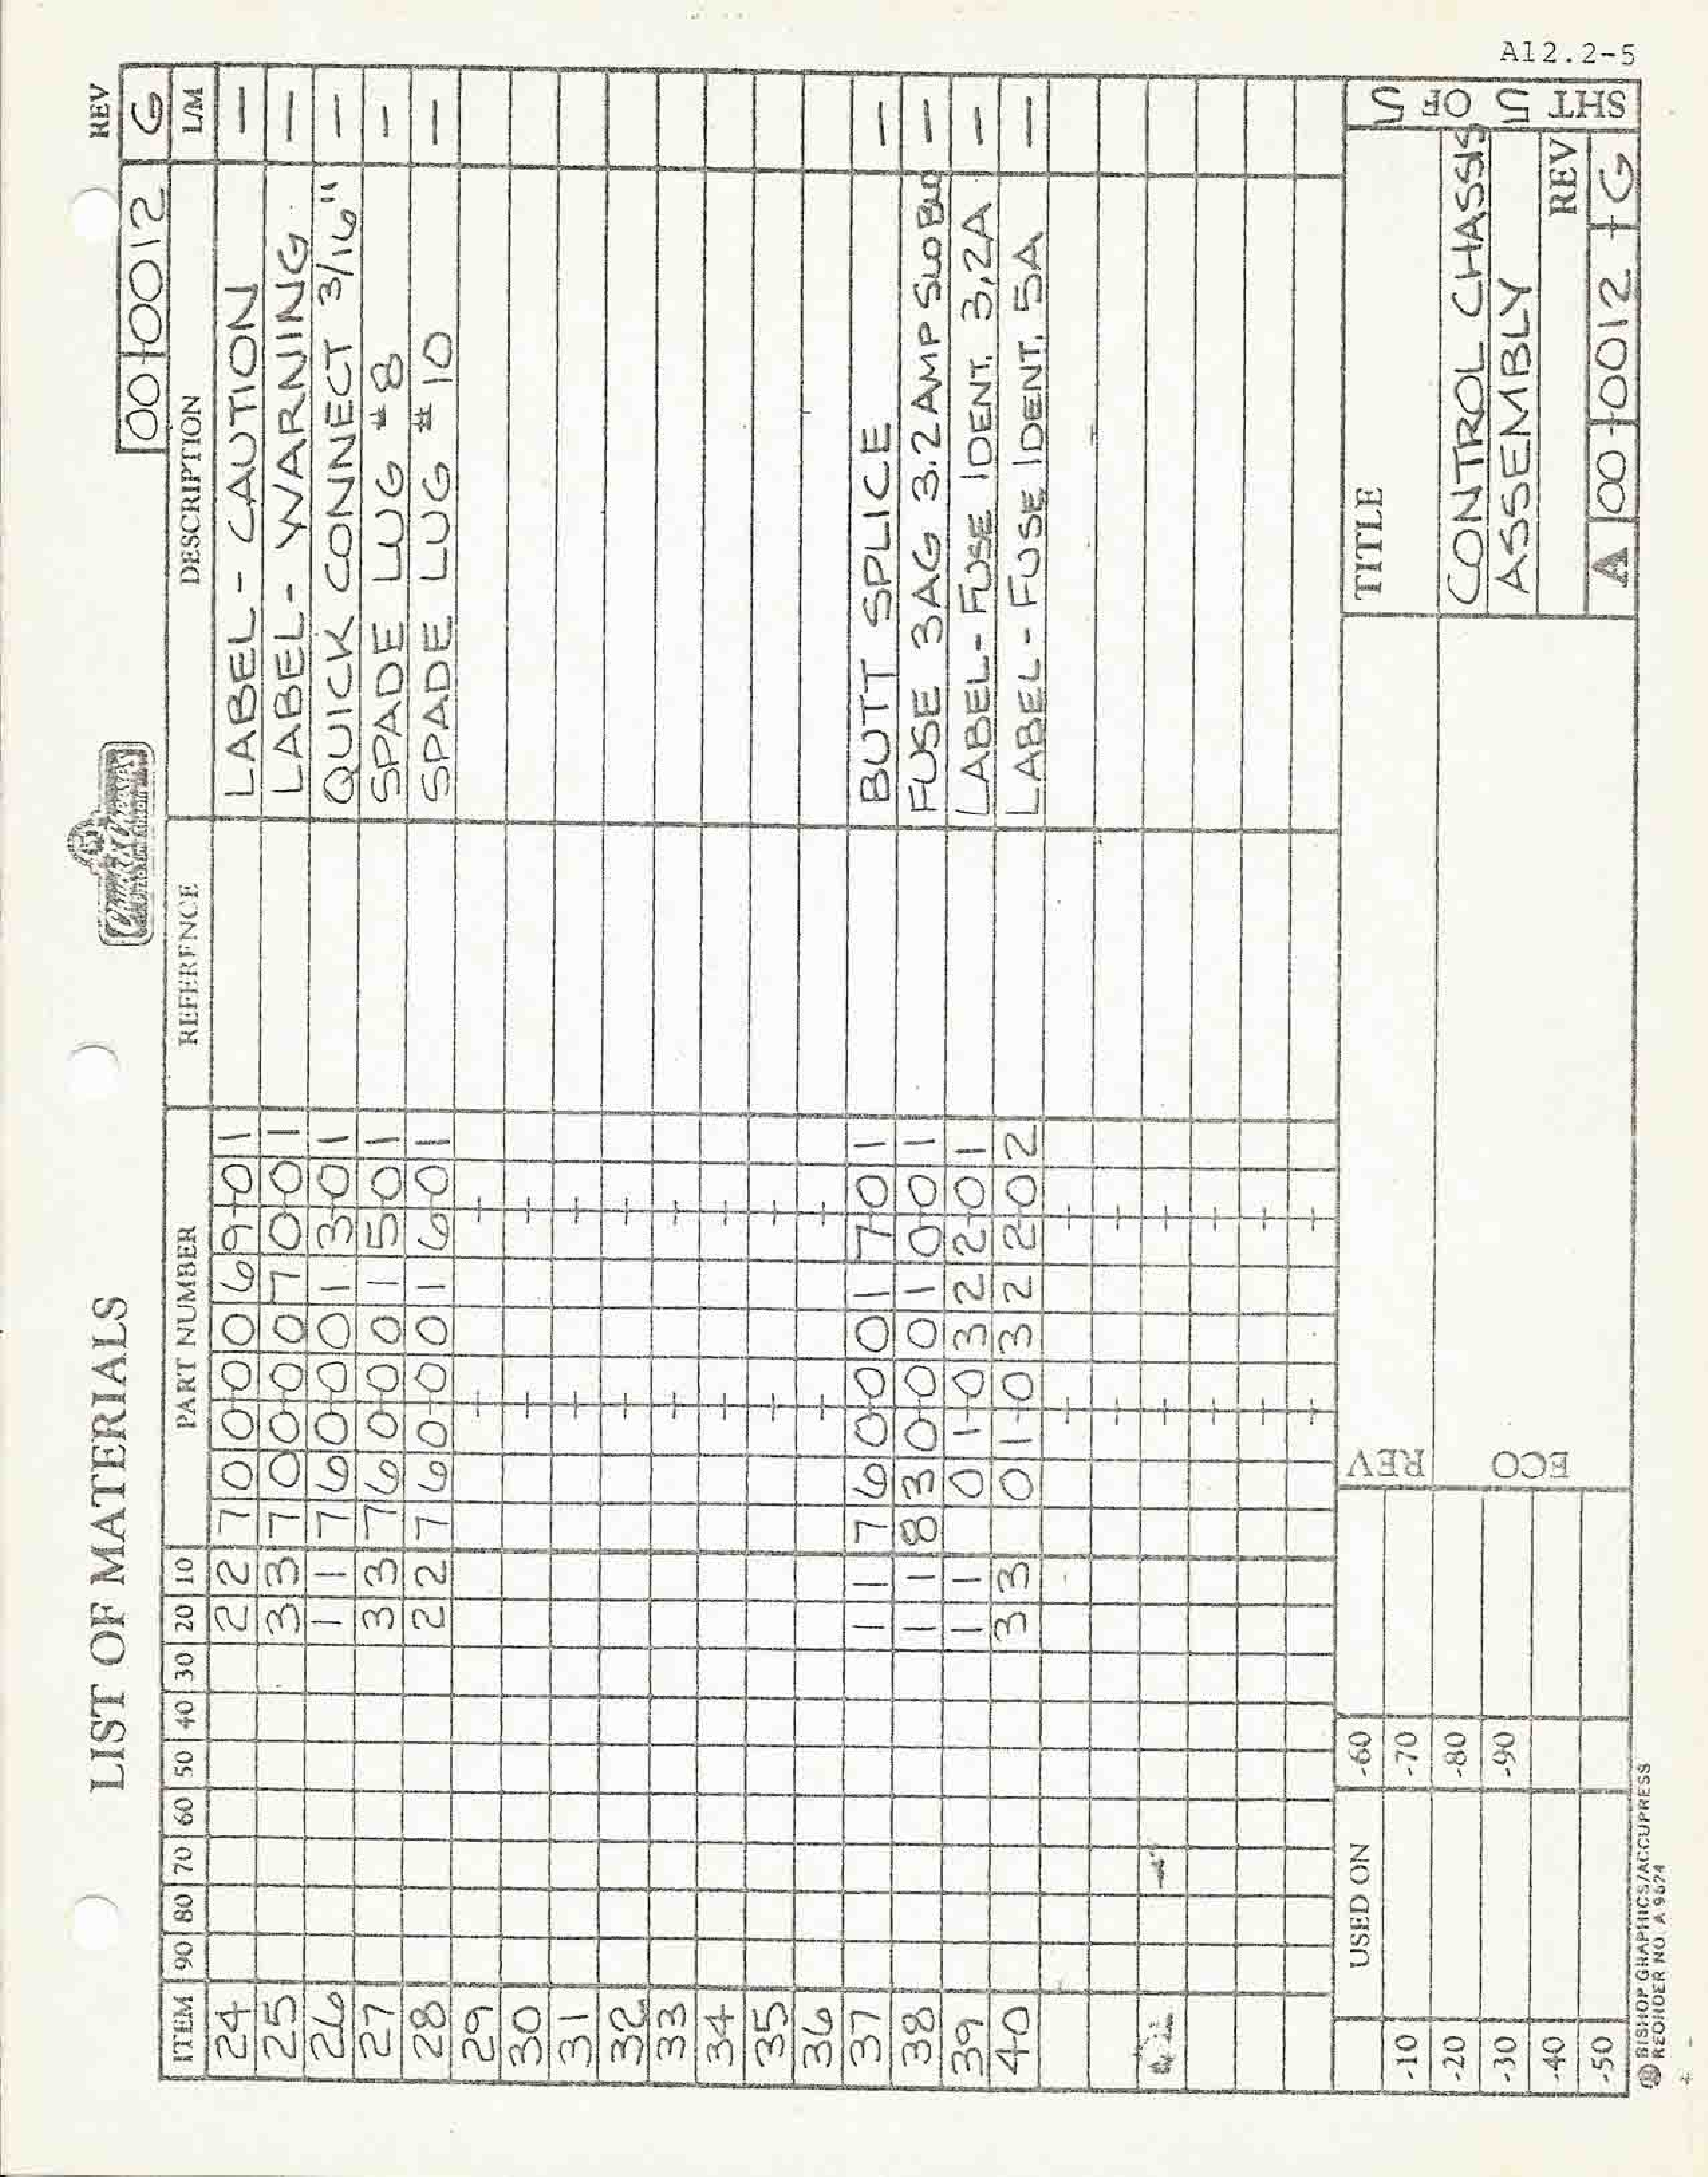 A12.2-5
LIST OF MATERIALS
REV
00-0012 G
ITEM 90 80 70 60 50 40 30 20 10 PART NUMBER REFERENCE DESCRIPTION L/M
24 2 2 700-0069-01 LABEL - CAUTION —
25 3 3 700-0070-01 LABEL - WARNING —
26 1 1 760-0013-01 QUICK CONNECT 3/16" —
27 3 3 760-0015-01 SPADE LUG #8 —
28 2 2 760-0016-01 SPADE LUG #10 —
29
30
31
32
33
34
35
36
37 1 1 760-0017-01 BUTT SPLICE —
38 1 1 830-0010-01 FUSE 3AG 3.2 AMP SLO BLO —
39 1 1 01-0322-01 LABEL - FUSE IDENT. 3,2A —
40 3 3 01-0322-02 LABEL - FUSE IDENT. 5A —
USED ON -60 REV TITLE
-10 -70
-20 -80 ECO CONTROL CHASSIS
-30 -90 ASSEMBLY
-40 REV
-50 A 00-0012-G
SHT 5 OF 5
BISHOP GRAPHICS/ACCUPRESS
REORDER NO. A 9674